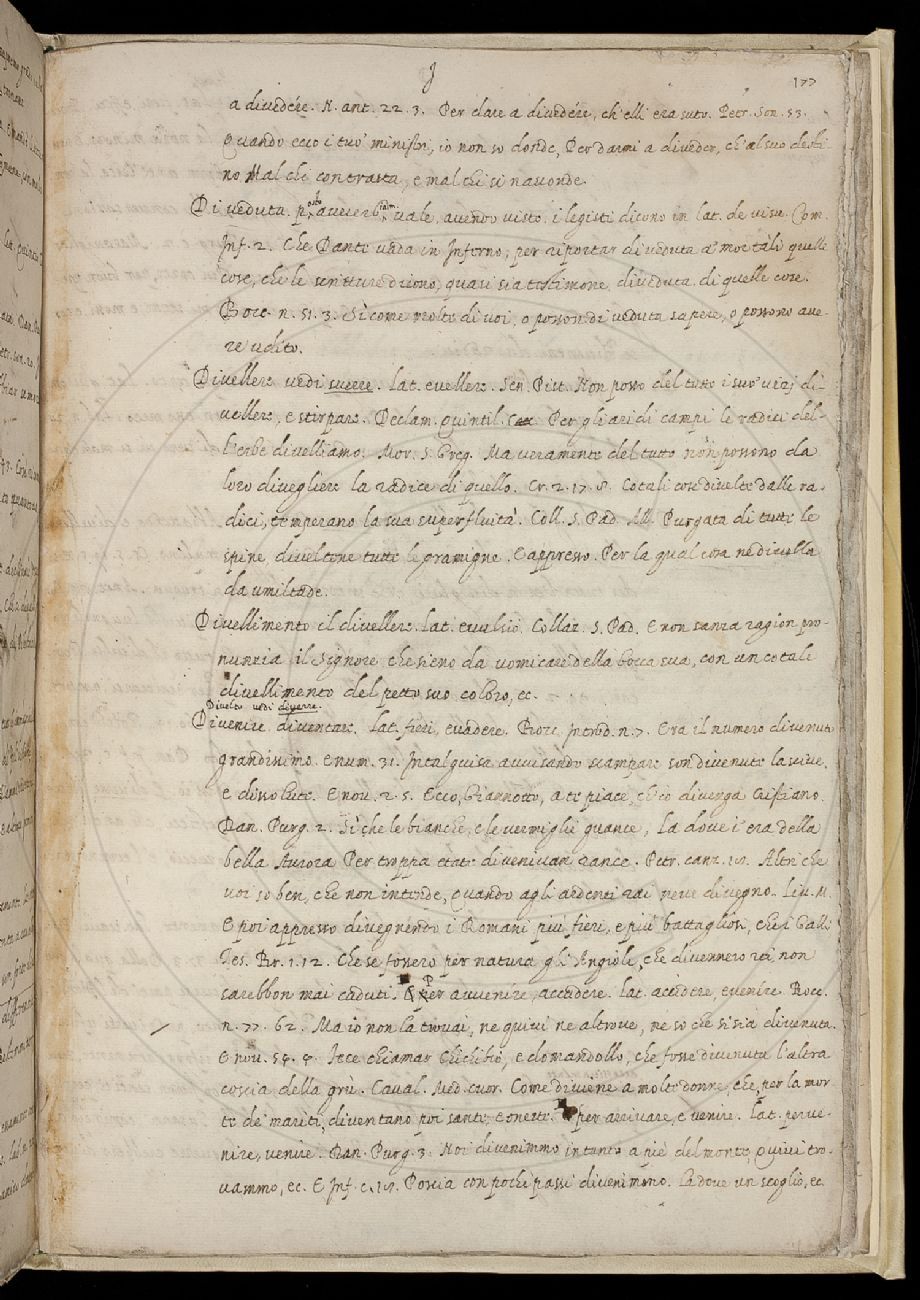 J
177
a divedére. N. ant. 22. 3. Per dare a divedére, ch'elli era suto. Petr. Son. 53.
Quando ecco i tuo' ministri, io non so donde, Per darmi a diveder, ch'al suo desti-
no Mal chi contrasta, e mal chi si nasconde.
Di veduta. posto avverbialm. vale, avendo visto. i legisti dicono in lat. de visu. Com.
Inf. 2. Che Dante vada in Inferno, per riportar di veduta a' mortali quelle
cose, che le scritture dicono, quasi sia testimone di veduta di quelle cose.
Bocc. n. 51. 3. Sì come molte di voi, o posson di veduta sapere, o possono ave-
re udito.
Divellere vedi sverre. lat. evellere. Sen. Pist. Non posso del tutto i suo' vizj di-
vellere, e stirpare. Declam. Quintil. Per gli aridi campi le radici del-
l'erbe divelliamo. Mor. S. Greg. Ma veramente del tutto non possono da
loro divegliere la radice di quello. Cr. 2. 17. 8. Cotali cose divelte dalle ra-
dici, temperano la sua superfluità. Coll. S. Pad. Purgata di tutte le
spine, diveltone tutte le gramigne. E appresso. Per la qual cosa ne divella
da umiltade.
Divellimento il divellere. lat. evulsio. Collaz. S. Pad. E non sanza ragion pro-
nunzia il Signore che sieno da vomicare della bocca sua, con un cotale
divellimento del petto suo coloro, ec.
Divelto vedi diverre.
Divenire. diventare. lat. fieri, evadere. Bocc. Introd. n. 7. Era il numero divenuto
grandissimo. E num. 31. In tal guisa avvisando scampare son divenute lascive,
e dissolute. E nov. 2. 5. Ecco, Giannotto, a te piace, ch'io divenga Cristiano.
Dan. Purg. 2. Sì che le bianche, e le vermiglie guance, Là dove i' era della
bella Aurora Per troppa etate divenivan rance. Petr. canz. 18. Altri che
voi so ben, che non intende, Quando agli ardenti rai neve divegno. Liv. M.
E poi appresso divegnendo i Romani più fieri, e più battagliosi, che i Galli
Tes. Br. 1. 12. Che se fossero per natura gli Angioli, che divennero rei non
sarebbon mai caduti. Per avvenire, accadere. lat. accidere, evenire. Bocc.
n. 77. 62. Ma io non la trovai, ne quivi ne altrove, ne so che si sia divenuta.
E nov. 54. 4. Fece chiamar Chichibio, e domandollo, che fosse divenuta l'altra
coscia della grù. Caval. Med. cuor. Come diviene a molte donne, che per la mor-
te de' mariti, diventano poi sante, e oneste. per arrivare, e venire. lat. perve-
nire, venire. Dan. Purg. 3. Noi divenimmo intanto a piè del monte, Quivi tro-
vammo, ec. E Inf. c. 18. Poscia con pochi passi divenimmo. Là dove un scoglio, ec.